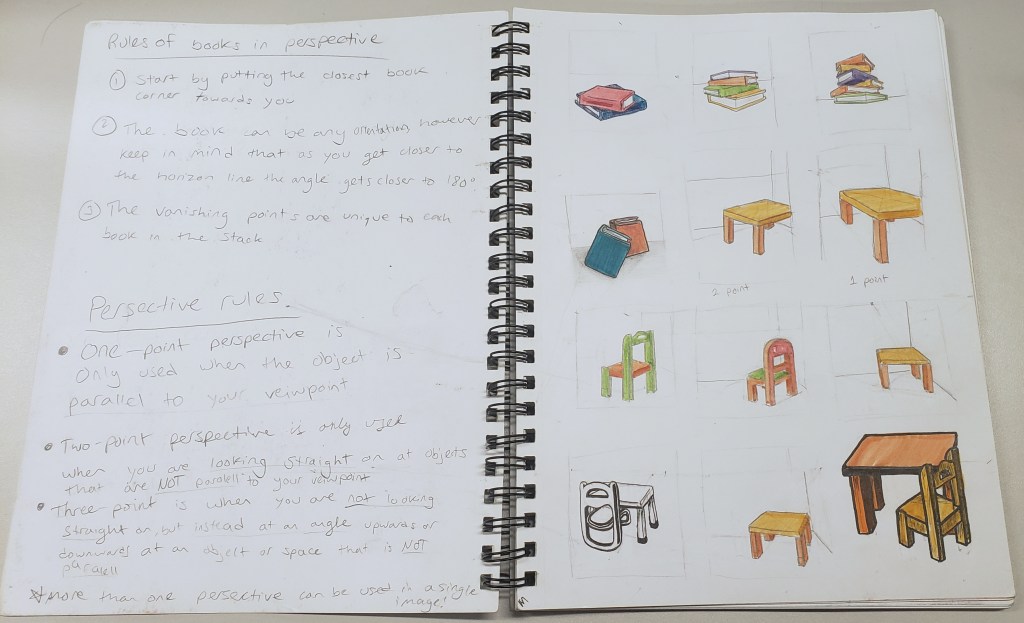 Rules of books in perspective
① Start by putting the closest book
corner towards you
② The book can be any orientation, however
keep in mind that as you get closer to
the horizon line the angle gets closer to 180°
③ The vanishing points are unique to each
book in the stack
Persective rules.
• One-point perspective is
only used when the object is
parallel to your veiwpoint
• Two-point perspective is only used
when you are looking straight on at objects
that are NOT paralell to your veiwpoint
• Three point is when you are not looking
straight on, but instead at an angle upwards or
downwards at an object or space that is NOT
paralell
* more than one persective can be used in a single
image!
2 point
1 point